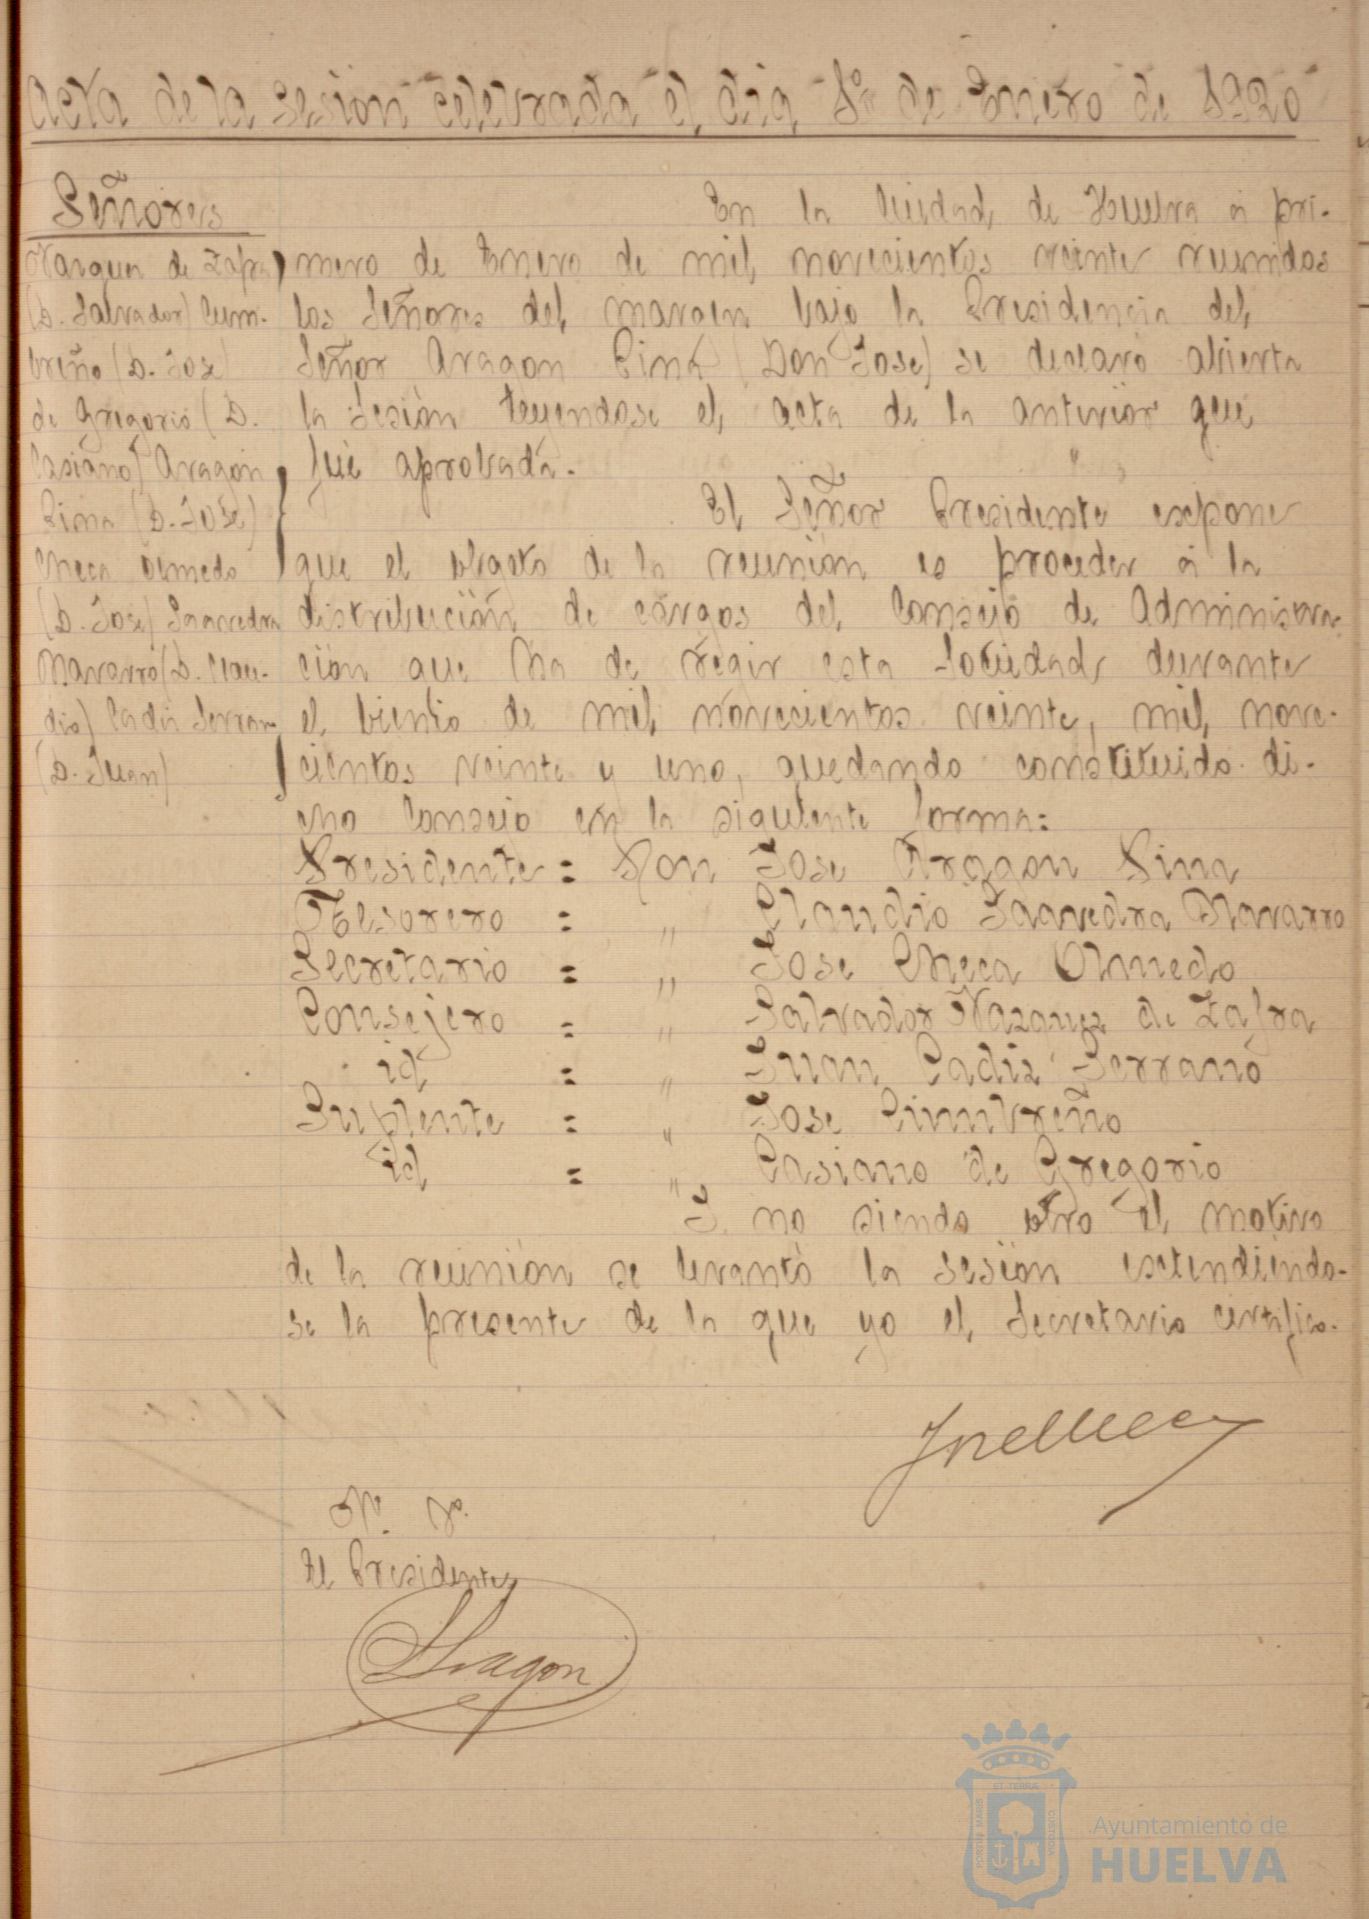 Acta de la sesion celebrada el dia 1º de Enero de 1920
Señores
Vazquez de Zafra
(D. Salvador) Cum-
breño (D. Jose)
de Gregorio (D.
Casiano) Aragon
Pina (D. José)
Checa Olmedo
(D. José) Saavedra
Navarro (D. Clau-
dio) Cadiz Serrano
(D. Juan)
En la Ciudad de Huelva á pri-
mero de Enero de mil novecientos veinte reunidos
los Señores del margen bajo la Presidencia del
Señor Aragon Pina (Don Jose) se declaró abierta
la Sesión leyendose el acta de la anterior que
fué aprobada.
El Señor Presidente expone
que el objeto de la reunión es proceder á la
distribución de cargos del Consejo de Administra-
ción que ha de regir esta Sociedad durante
el bienio de mil novecientos veinte, mil nove-
cientos veinte y uno, quedando constituido di-
cho Consejo en la siguiente forma:
Presidente = Don Jose Aragon Pina
Tesorero = " Claudio Saavedra Navarro
Secretario = " Jose Checa Olmedo
Consejero = " Salvador Vazquez de Zafra
id = " Juan Cadiz Serrano
Suplente = " Jose Cumbreño
id = " Casiano de Gregorio
Y no siendo otro el motivo
de la reunión se levantó la sesión extendiendo-
se la presente de la que yo el Secretario certifico.
Vº. Bº.
El Presidente
Aragon
ET TERRA
CUSTODIA
PORTUS MARIS
Ayuntamiento de
HUELVA